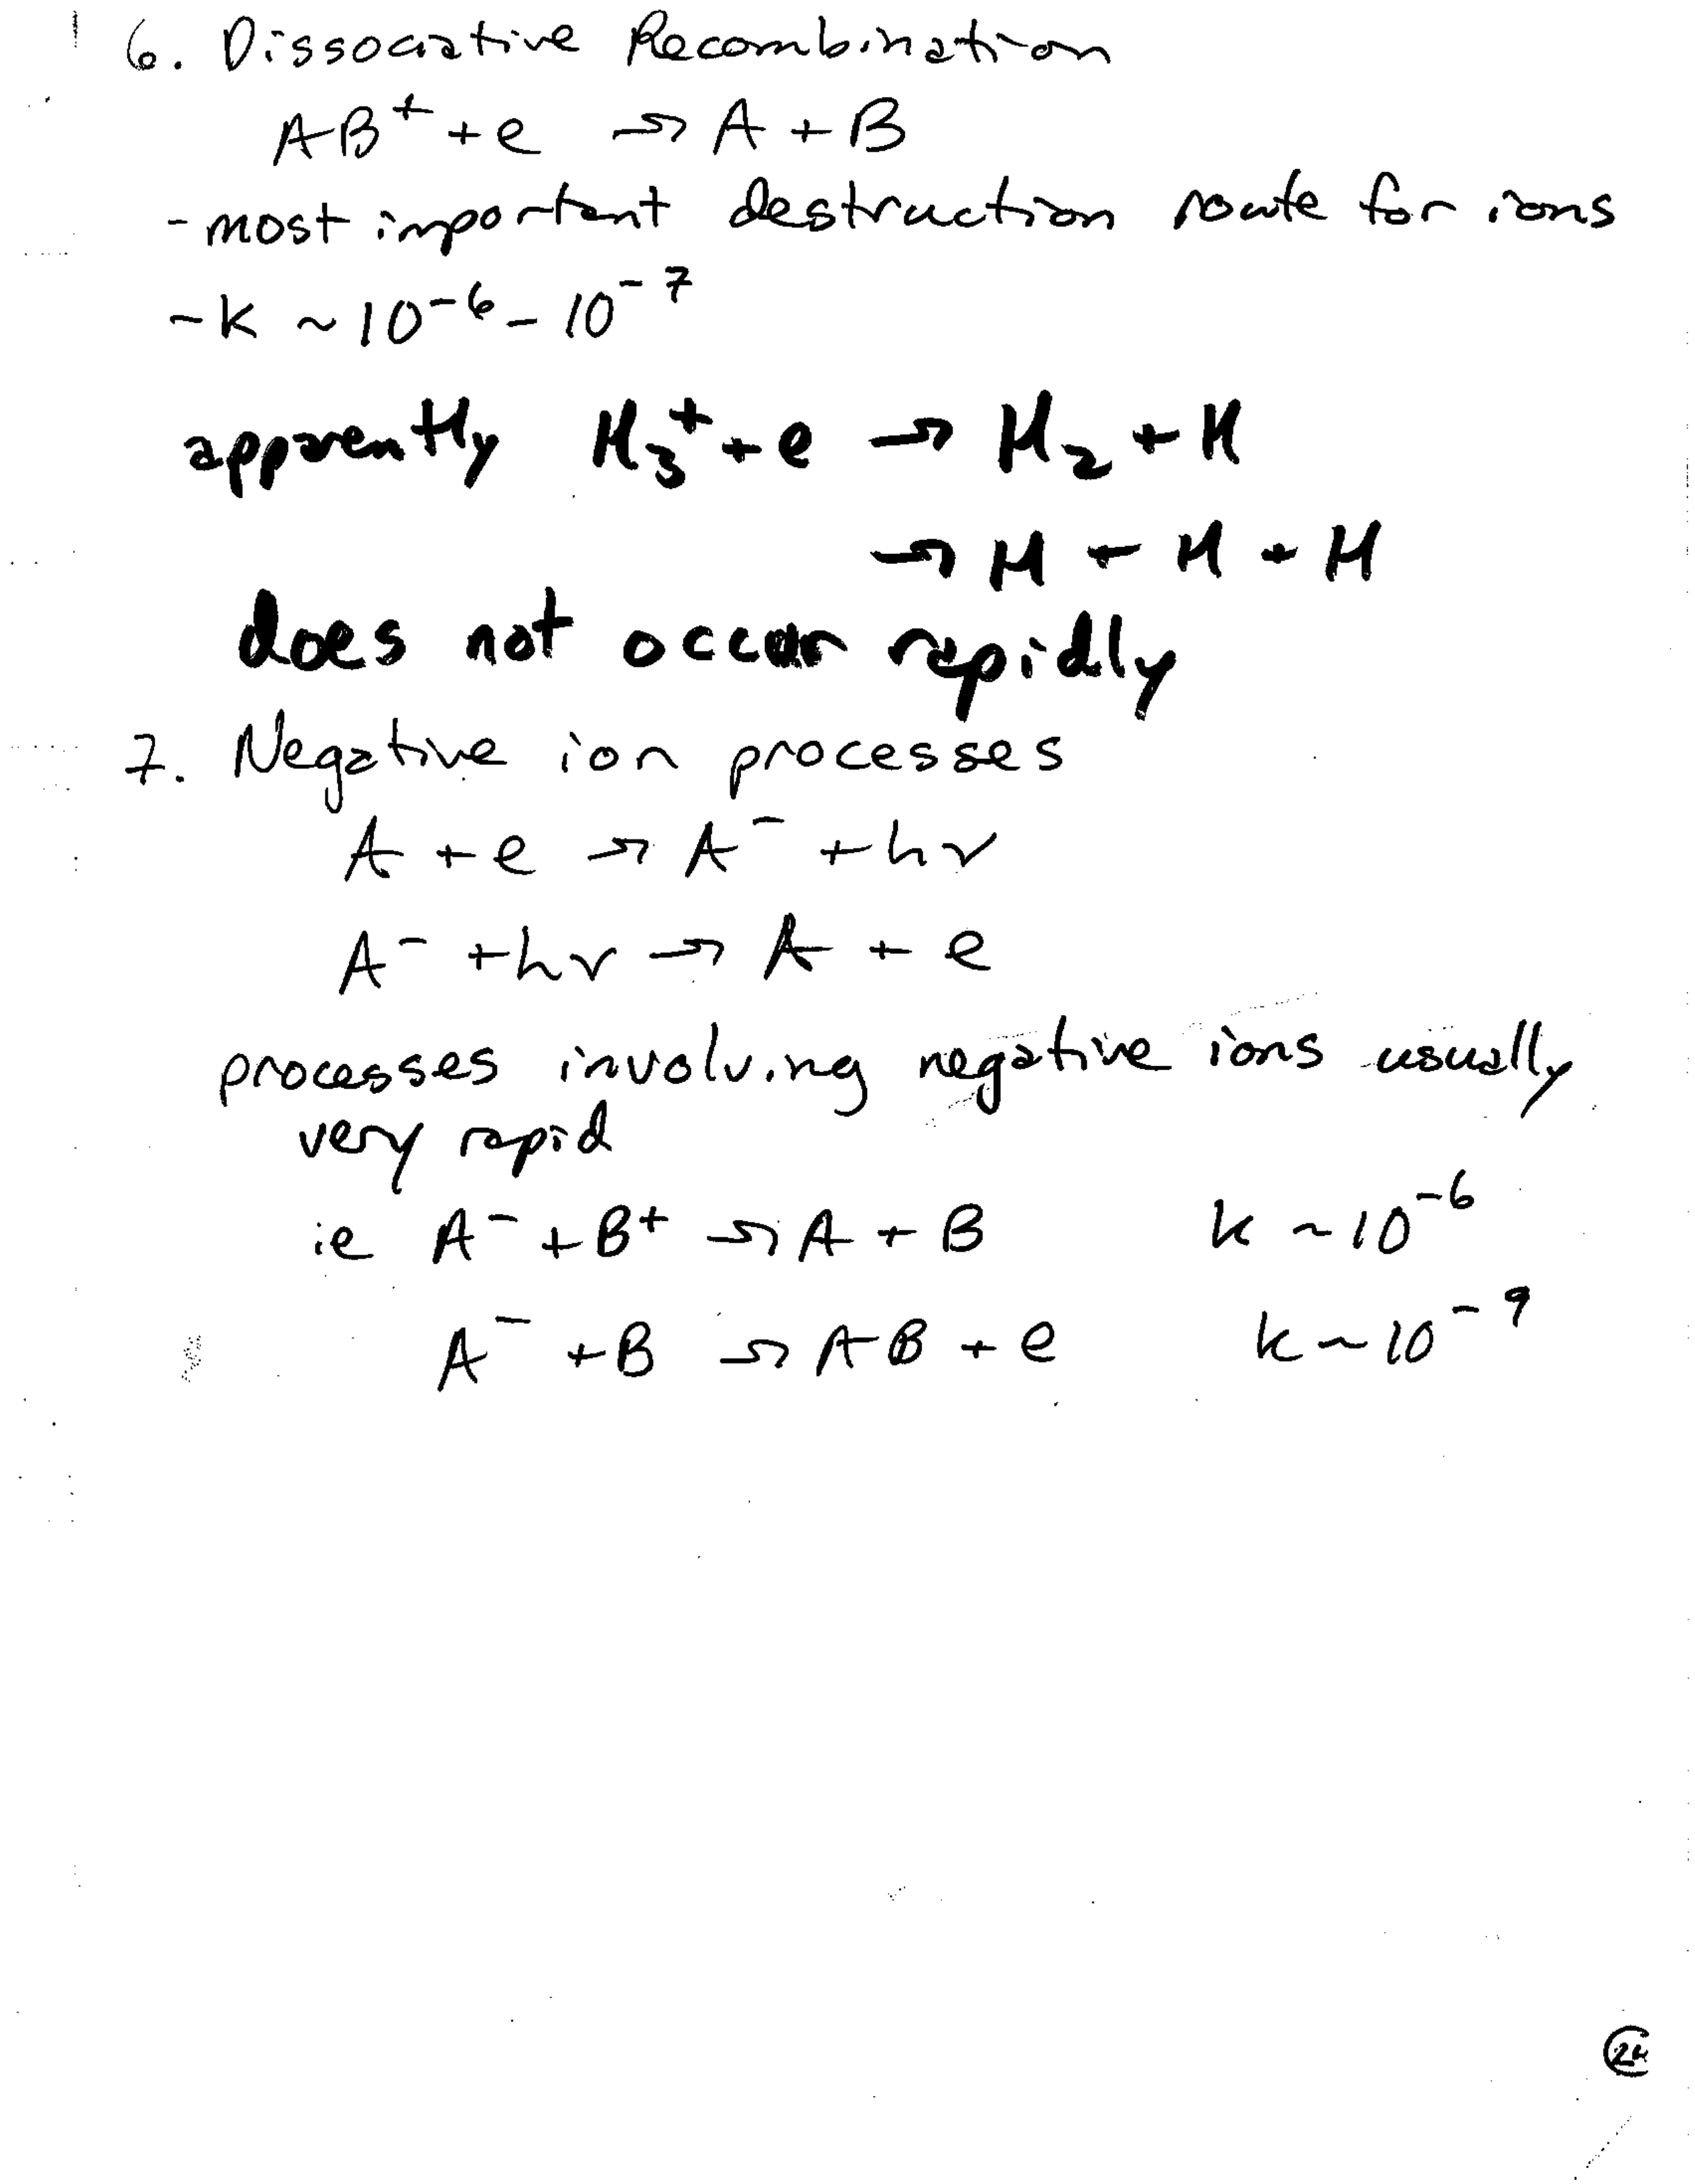 6. Dissociative Recombination
AB⁺ + e → A + B
- most important destruction route for ions
- k ~ 10⁻⁶ - 10⁻⁷
apparently H₃⁺ + e → H₂ + H
→ H + H + H
does not occur rapidly
7. Negative ion processes
A + e → A⁻ + hν
A⁻ + hν → A + e
processes involving negative ions usually
very rapid
ie A⁻ + B⁺ → A + B k ~ 10⁻⁶
A⁻ + B → AB + e k ~ 10⁻⁹